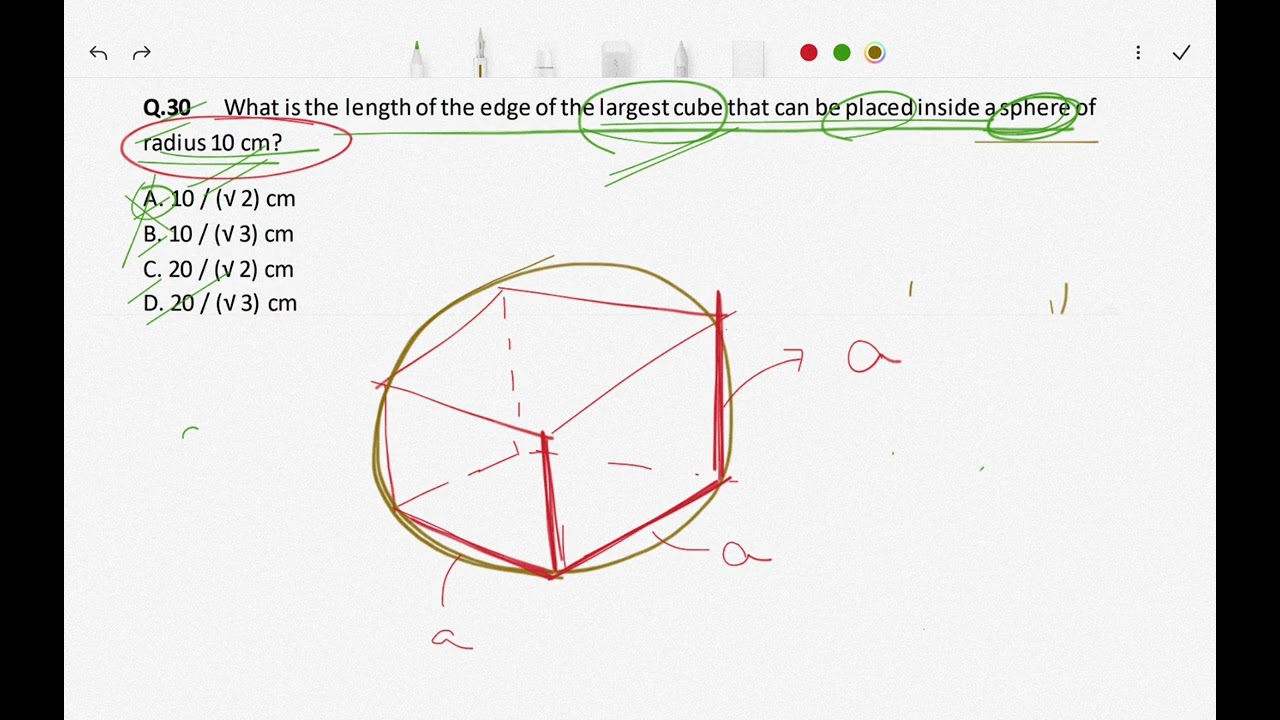 Q.30 What is the length of the edge of the largest cube that can be placed inside a sphere of
radius 10 cm?
A. 10 / (√ 2) cm
B. 10 / (√ 3) cm
C. 20 / (√ 2) cm
D. 20 / (√ 3) cm
a
a
a